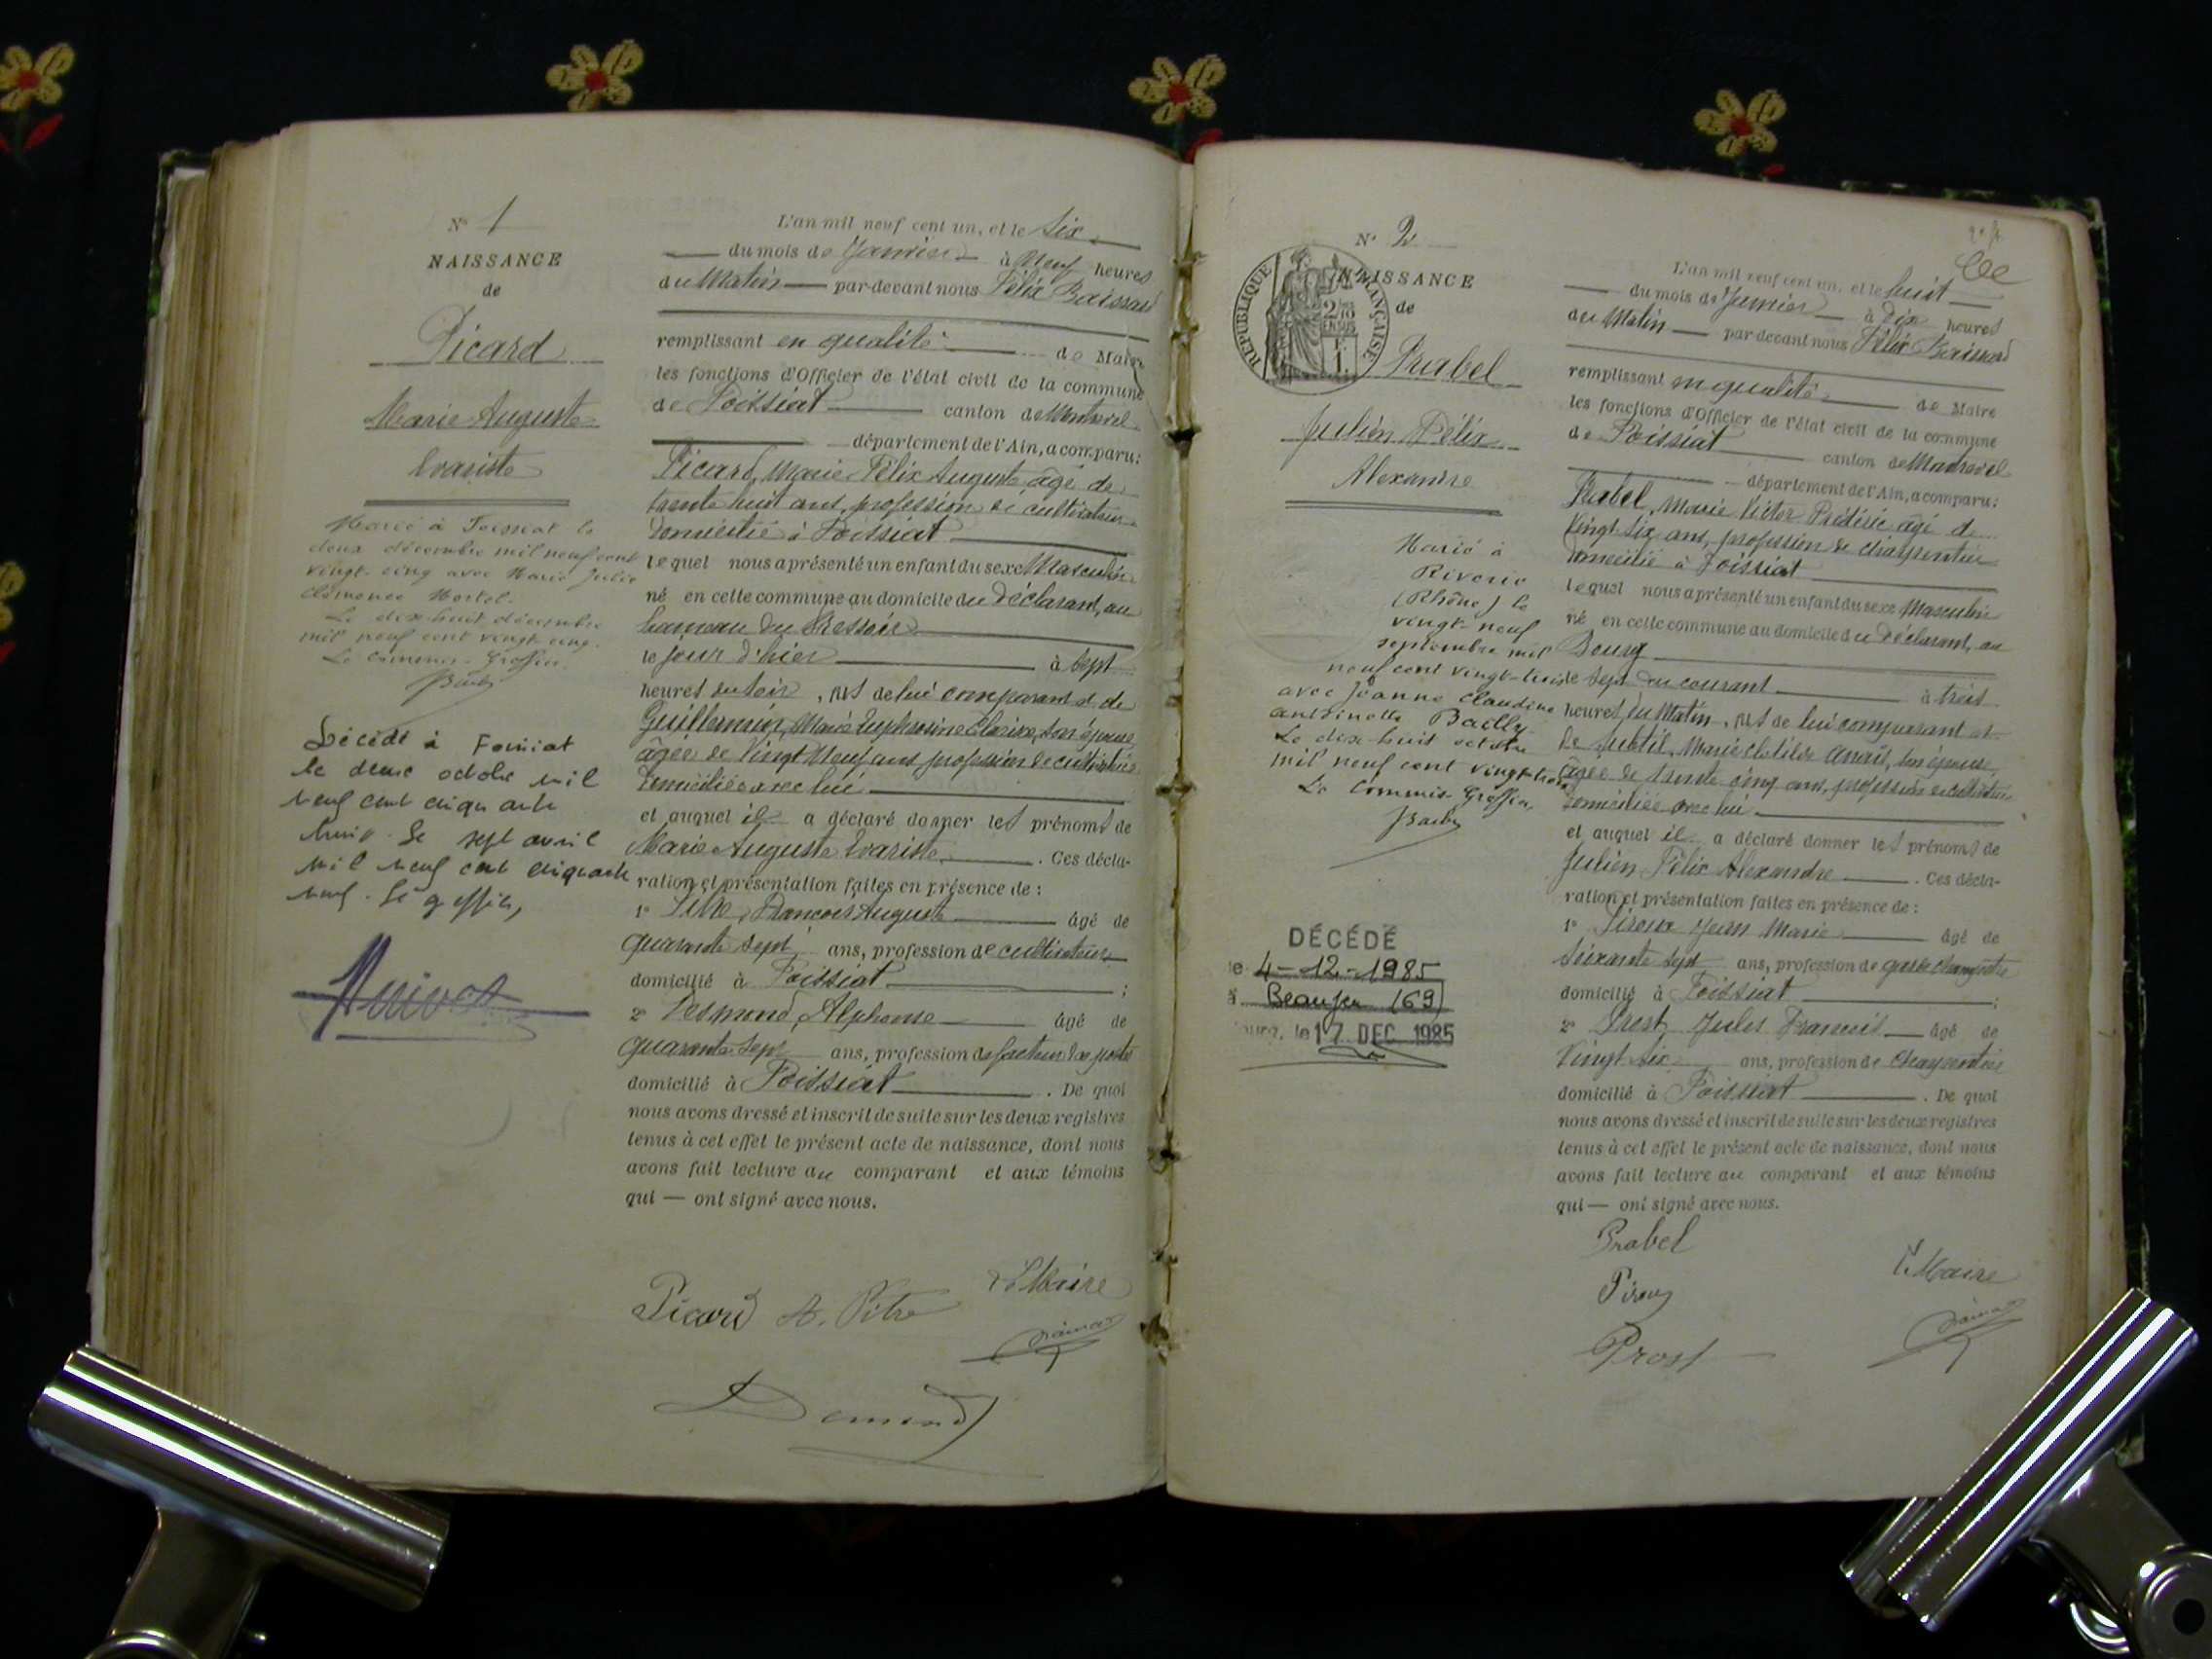 N° 1
NAISSANCE
de
Picard
Marie Auguste
Evariste
Marié à Foissiat le
deux décembre mil neuf cent
vingt-cinq avec Marie Julie
Clémence Mortel.
Le dix-huit décembre
mil neuf cent vingt-cinq.
Le Commis-Greffier
Décédé à Foissiat
le deux octobre mil
neuf cent cinquante
huit. Le sept avril
mil neuf cent cinquante
neuf. Le greffier,
L'an mil neuf cent un, et le six
du mois de Janvier à Neuf heures
du Matin par-devant nous Félix
remplissant en qualité de Maire
les fonctions d'Officier de l'état civil de la commune
de Foissiat canton de Montrevel
département de l'Ain, a comparu:
Picard, Marie Félix Auguste âgé de
trente huit ans, profession de cultivateur
domicilié à Foissiat
lequel nous a présenté un enfant du sexe Masculin
né en cette commune au domicile du Déclarant, au
hameau du Pressoir
le jour d'hier à Sept
heures du soir, fils de lui comparant et de
Guillermin, Marie Euphrosine Claire, son épouse
âgée de Vingt Neuf ans profession de cultivatrice
domiciliée avec lui
et auquel il a déclaré donner les prénoms de
Marie Auguste Evariste. Ces décla-
ration et présentation faites en présence de :
1° Pitre, François Auguste âgé de
quarante sept ans, profession de cultivateur
domicilié à Foissiat ;
2° Desmond, Alphonse âgé de
quarante sept ans, profession de facteur des postes
domicilié à Foissiat. De quoi
nous avons dressé et inscrit de suite sur les deux registres
tenus à cet effet le présent acte de naissance, dont nous
avons fait lecture au comparant et aux témoins
qui — ont signé avec nous.
Picard A. Pitre Le Maire
N° 2
RÉPUBLIQUE FRANÇAISE
NAISSANCE
de
Prabel
Julien Félix
Alexandre
Marié à
Riverie
(Rhône) le
vingt-neuf
septembre mil
neuf cent vingt-trois
avec Jeanne Claudine
Antoinette Bailly.
Le dix-huit octobre
mil neuf cent vingt-trois
Le Commis-Greffier,
DÉCÉDÉ
le 4-12-1985
à Beaujeu (69)
le 17 DEC. 1985
L'an mil neuf cent un, et le huit
du mois de Janvier à Dix heures
du Matin par-devant nous Félix
remplissant en qualité de Maire
les fonctions d'Officier de l'état civil de la commune
de Foissiat canton de Montrevel
département de l'Ain, a comparu:
Prabel, Marie Victor Frédéric âgé de
Vingt six ans, profession de charpentier
domicilié à Foissiat
lequel nous a présenté un enfant du sexe Masculin
né en cette commune au domicile du Déclarant, au
Bourg
le sept du courant à trois
heures du Matin, fils de lui comparant et
de Subtil, Marie Clotilde Anaïs, son épouse,
âgée de trente cinq ans, profession de cultivatrice
domiciliée avec lui
et auquel il a déclaré donner les prénoms de
Julien Félix Alexandre. Ces décla-
ration et présentation faites en présence de :
1° Piroux Jean Marie âgé de
Soixante sept ans, profession de garde champêtre
domicilié à Foissiat ;
2° Prost Jules François âgé de
Vingt six ans, profession de Charpentier
domicilié à Foissiat. De quoi
nous avons dressé et inscrit de suite sur les deux registres
tenus à cet effet le présent acte de naissance, dont nous
avons fait lecture au comparant et aux témoins
qui — ont signé avec nous.
Prabel
Le Maire
Piroux
Prost